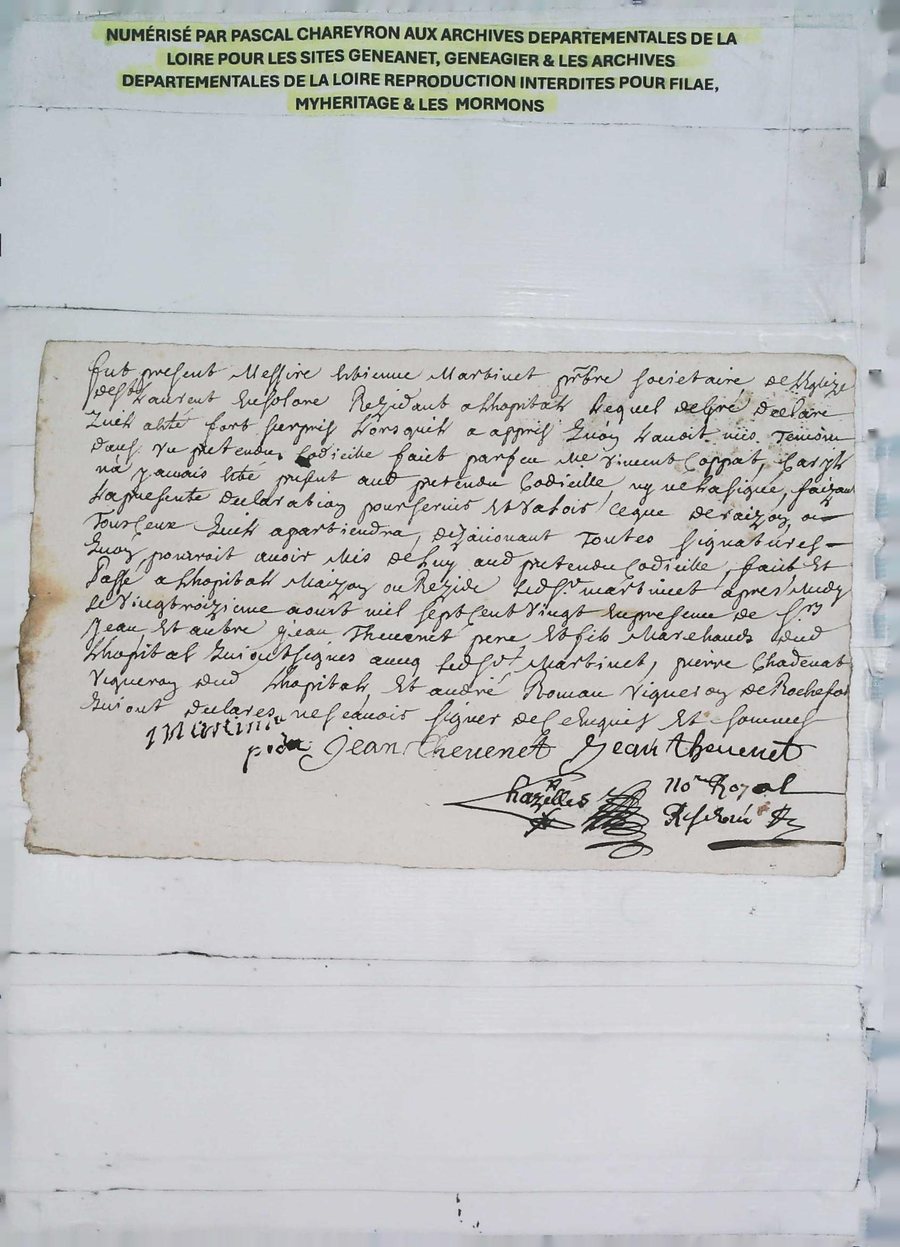 NUMÉRISÉ PAR PASCAL CHAREYRON AUX ARCHIVES DEPARTEMENTALES DE LA
LOIRE POUR LES SITES GENEANET, GENEAGIER & LES ARCHIVES
DEPARTEMENTALES DE LA LOIRE REPRODUCTION INTERDITES POUR FILAE,
MYHERITAGE & LES MORMONS
fut present Messire Estienne Martinet prbre societaire de Leglize
de St Laurent Ensolore Rezidant a Lhopital Lequel de gré declare
quil a été fort surpris Lorsquil a appris quon Lavoit mis Temoin
dans un pretendu Codicille fait par feu Me Vincent Coppat, Car il
na Jamais été présent aud pretendu Codicille ny ne la signé, faizant
La presente declaration pour servir Et valoir Ce que de raizon a
Tous Ceux quil apartiendra, desavouant Toutes signatures
quon pourroit avoir Mis de Luy aud pretendu Codicille, fait Et
Passé a Lhopital Maizon ou Rezide Led Sr Martinet apres Midy
Le vingtroizieme aoust mil sept Cent Vingt En presence de Srs
Jean Et autre Jean Thevenet pere Et fils Marchands dud
Lhopital qui ont signés avec Led Sr Martinet, pierre Chadenat
Vigneron dud Lhopital, Et andré Roman vigneron de Rochefor
qui ont declarés ne scavoir signer de ce Enquis Et sommés
Martinet
pbre Jean Thevenet Jean thevenet
Chazelles no.re Royal